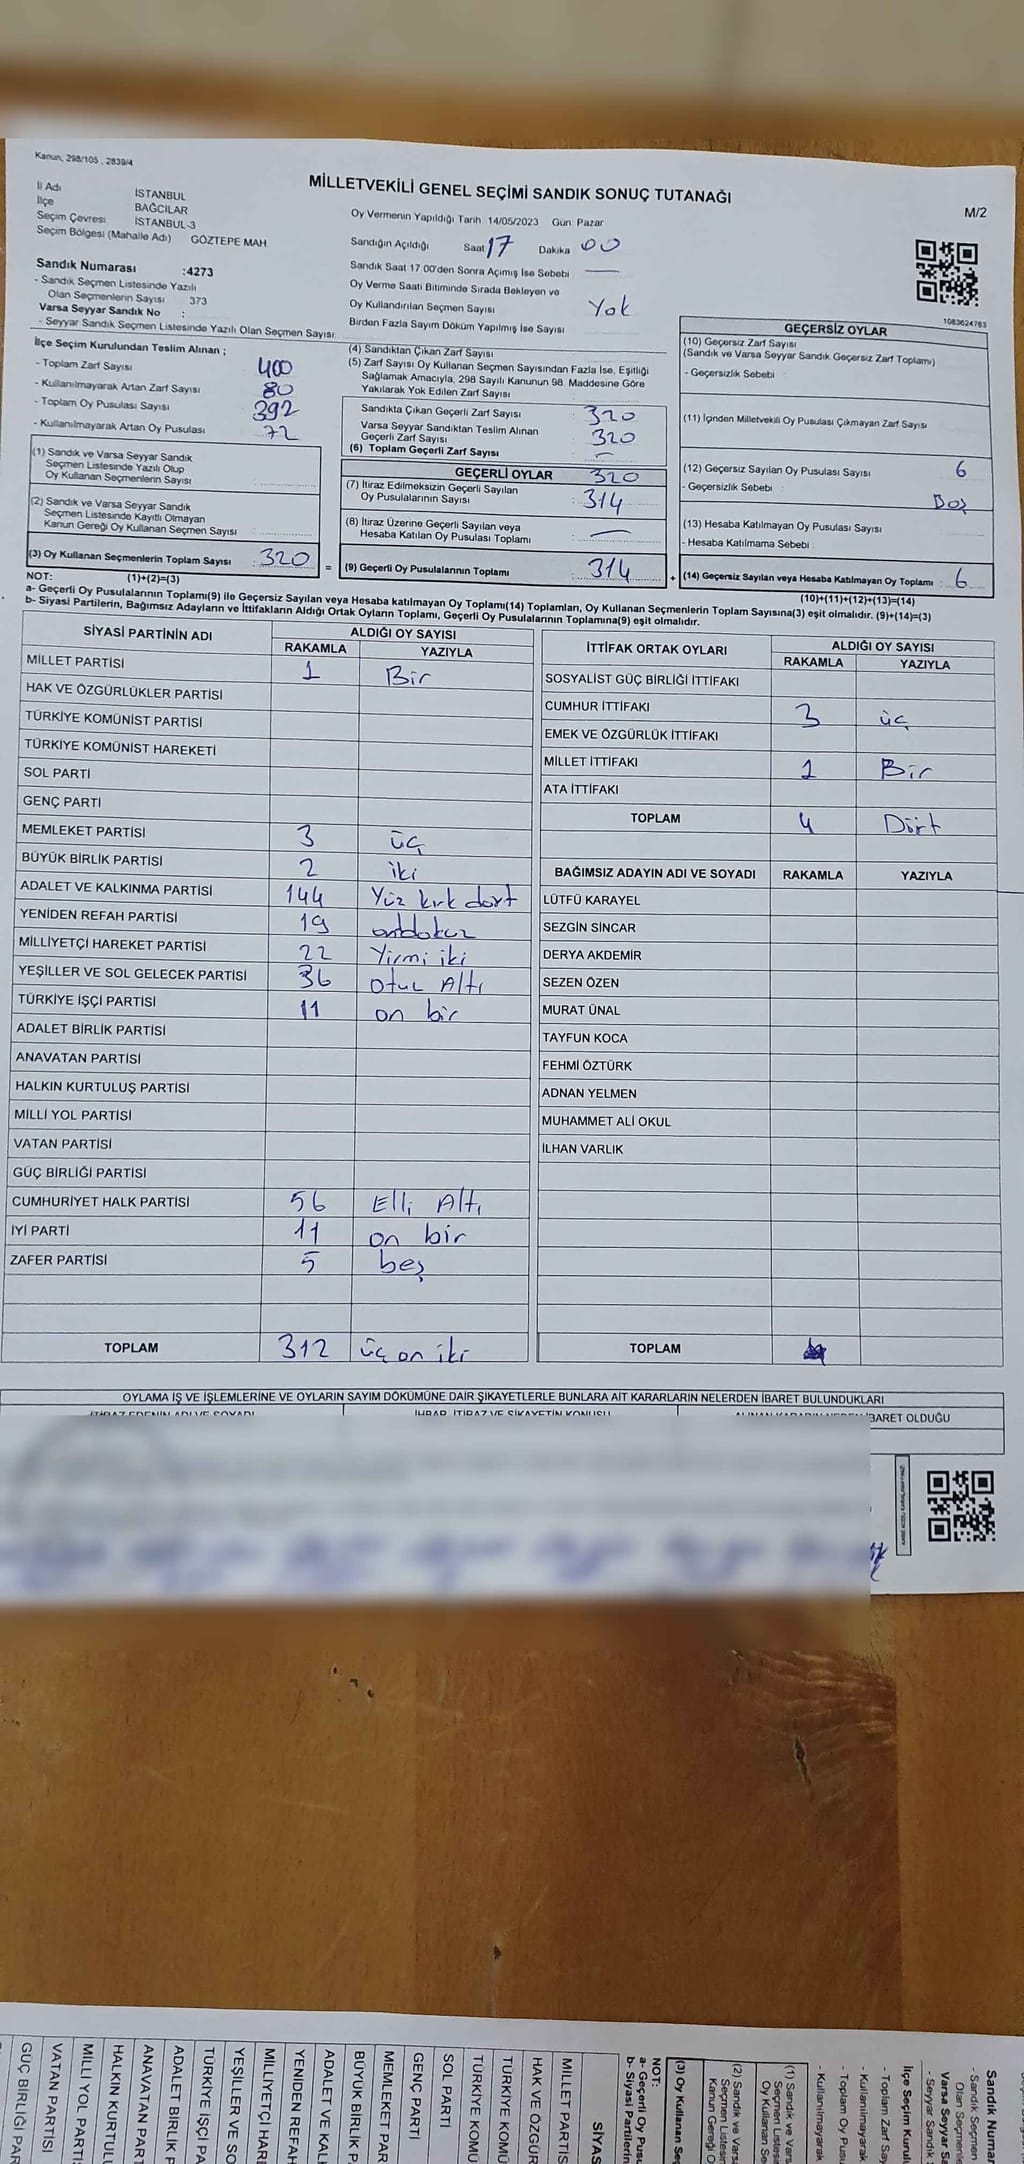 Kanun, 298/105 , 2839/4
MİLLETVEKİLİ GENEL SEÇİMİ SANDIK SONUÇ TUTANAĞI
M/2
İl Adı İSTANBUL
İlçe BAĞCILAR
Seçim Çevresi İSTANBUL-3
Seçim Bölgesi (Mahalle Adı) GÖZTEPE MAH
Sandık Numarası :4273
- Sandık Seçmen Listesinde Yazılı
Olan Seçmenlerin Sayısı 373
Varsa Seyyar Sandık No :
- Seyyar Sandık Seçmen Listesinde Yazılı Olan Seçmen Sayısı:
Oy Vermenin Yapıldığı Tarih 14/05/2023 Gün Pazar
Sandığın Açıldığı Saat 17 Dakika 00
Sandık Saat 17 00'den Sonra Açımış İse Sebebi —
Oy Verme Saati Bitiminde Sırada Bekleyen ve
Oy Kullandırılan Seçmen Sayısı Yok
Birden Fazla Sayım Döküm Yapılmış İse Sayısı
1083624783
İlçe Seçim Kurulundan Teslim Alınan ;
- Toplam Zarf Sayısı 400
- Kullanılmayarak Artan Zarf Sayısı 80
- Toplam Oy Pusulası Sayısı 392
- Kullanılmayarak Artan Oy Pusulası 72
(1) Sandık ve Varsa Seyyar Sandık
Seçmen Listesinde Yazılı Olup
Oy Kullanan Seçmenlerin Sayısı
(2) Sandık ve Varsa Seyyar Sandık
Seçmen Listesinde Kayıtlı Olmayan
Kanun Gereği Oy Kullanan Seçmen Sayısı
(3) Oy Kullanan Seçmenlerin Toplam Sayısı : 320
(1)+(2)=(3)
(4) Sandıktan Çıkan Zarf Sayısı
(5) Zarf Sayısı Oy Kullanan Seçmen Sayısından Fazla İse, Eşitliği
Sağlamak Amacıyla, 298 Sayılı Kanunun 98. Maddesine Göre
Yakılarak Yok Edilen Zarf Sayısı
Sandıkta Çıkan Geçerli Zarf Sayısı 320
Varsa Seyyar Sandıktan Teslim Alınan
Geçerli Zarf Sayısı 320
(6) Toplam Geçerli Zarf Sayısı —
GEÇERLİ OYLAR 320
(7) İtiraz Edilmeksizin Geçerli Sayılan
Oy Pusulalarının Sayısı 314
(8) İtiraz Üzerine Geçerli Sayılan veya
Hesaba Katılan Oy Pusulası Toplamı —
= (9) Geçerli Oy Pusulalarının Toplamı 314
GEÇERSİZ OYLAR
(10) Geçersiz Zarf Sayısı
(Sandık ve Varsa Seyyar Sandık Geçersiz Zarf Toplamı)
- Geçersizlik Sebebi
(11) İçinden Milletvekili Oy Pusulası Çıkmayan Zarf Sayısı
(12) Geçersiz Sayılan Oy Pusulası Sayısı 6
- Geçersizlik Sebebi : Boş
(13) Hesaba Katılmayan Oy Pusulası Sayısı
- Hesaba Katılmama Sebebi
+ (14) Geçersiz Sayılan veya Hesaba Katılmayan Oy Toplamı : 6
(10)+(11)+(12)+(13)=(14)
NOT:
a- Geçerli Oy Pusulalarının Toplamı(9) ile Geçersiz Sayılan veya Hesaba katılmayan Oy Toplamı(14) Toplamları, Oy Kullanan Seçmenlerin Toplam Sayısına(3) eşit olmalıdır. (9)+(14)=(3)
b- Siyasi Partilerin, Bağımsız Adayların ve İttifakların Aldığı Ortak Oyların Toplamı, Geçerli Oy Pusulalarının Toplamına(9) eşit olmalıdır.
SİYASİ PARTİNİN ADI ALDIĞI OY SAYISI
RAKAMLA YAZIYLA
MİLLET PARTİSİ 1 Bir
HAK VE ÖZGÜRLÜKLER PARTİSİ
TÜRKİYE KOMÜNİST PARTİSİ
TÜRKİYE KOMÜNİST HAREKETİ
SOL PARTİ
GENÇ PARTİ
MEMLEKET PARTİSİ 3 üç
BÜYÜK BİRLİK PARTİSİ 2 iki
ADALET VE KALKINMA PARTİSİ 144 Yüz kırk dört
YENİDEN REFAH PARTİSİ 19 ondokuz
MİLLİYETÇİ HAREKET PARTİSİ 22 Yirmi iki
YEŞİLLER VE SOL GELECEK PARTİSİ 36 Otuz Altı
TÜRKİYE İŞÇİ PARTİSİ 11 on bir
ADALET BİRLİK PARTİSİ
ANAVATAN PARTİSİ
HALKIN KURTULUŞ PARTİSİ
MİLLİ YOL PARTİSİ
VATAN PARTİSİ
GÜÇ BİRLİĞİ PARTİSİ
CUMHURİYET HALK PARTİSİ 56 Elli Altı
İYİ PARTİ 11 on bir
ZAFER PARTİSİ 5 beş
TOPLAM 312 üç on iki
İTTİFAK ORTAK OYLARI ALDIĞI OY SAYISI
RAKAMLA YAZIYLA
SOSYALİST GÜÇ BİRLİĞİ İTTİFAKI
CUMHUR İTTİFAKI 3 üç
EMEK VE ÖZGÜRLÜK İTTİFAKI
MİLLET İTTİFAKI 1 Bir
ATA İTTİFAKI
TOPLAM 4 Dört
BAĞIMSIZ ADAYIN ADI VE SOYADI RAKAMLA YAZIYLA
LÜTFÜ KARAYEL
SEZGİN SİNCAR
DERYA AKDEMİR
SEZEN ÖZEN
MURAT ÜNAL
TAYFUN KOCA
FEHMİ ÖZTÜRK
ADNAN YELMEN
MUHAMMET ALİ OKUL
İLHAN VARLIK
TOPLAM
OYLAMA İŞ VE İŞLEMLERİNE VE OYLARIN SAYIM DÖKÜMÜNE DAİR ŞİKAYETLERLE BUNLARA AİT KARARLARIN NELERDEN İBARET BULUNDUKLARI
İTİRAZ EDENİN ADI VE SOYADI İHBAR, İTİRAZ VE ŞİKAYETİN KONUSU BARET OLDUĞU
Sandık Numar
- Sandık Seçmen
Olan Seçmenle
Varsa Seyyar Sa
- Seyyar Sandık
İlçe Seçim Kurulu
- Toplam Zarf Say
- Kullanılmayarak
- Toplam Oy Pusu
- Kullanılmayarak
(1) Sandık ve Vars
Seçmen Listesin
Oy Kullanan Se
(2) Sandık ve Varsa
Seçmen Listesin
Kanun Gereği O
(3) Oy Kullanan Seç
NOT:
a- Geçerli Oy Pusu
b- Siyasi Partilerin
SİYAS
MİLLET PARTİS
HAK VE ÖZGÜR
TÜRKİYE KOMÜ
TÜRKİYE KOMÜ
SOL PARTİ
GENÇ PARTİ
MEMLEKET PAR
BÜYÜK BİRLİK P
ADALET VE KAL
YENİDEN REFAH
MİLLİYETÇİ HARE
YEŞİLLER VE SO
TÜRKİYE İŞÇİ PA
ADALET BİRLİK P
ANAVATAN PART
HALKIN KURTULU
MİLLİ YOL PARTİS
VATAN PARTİSİ
GÜÇ BİRLİĞİ PAR